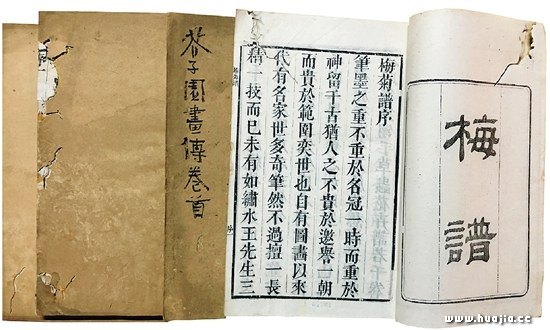 梅譜
梅菊譜序
筆墨之重不重於名冠一時而重於
神留千古猶人之不貴於邀譽一朝
而貴於範圍奕世也自有圖畫以來
代有名家世多奇筆然不過擅一長
精一技而已未有如繡水王先生三
芥子園畫傳卷首
www.huajia.cc